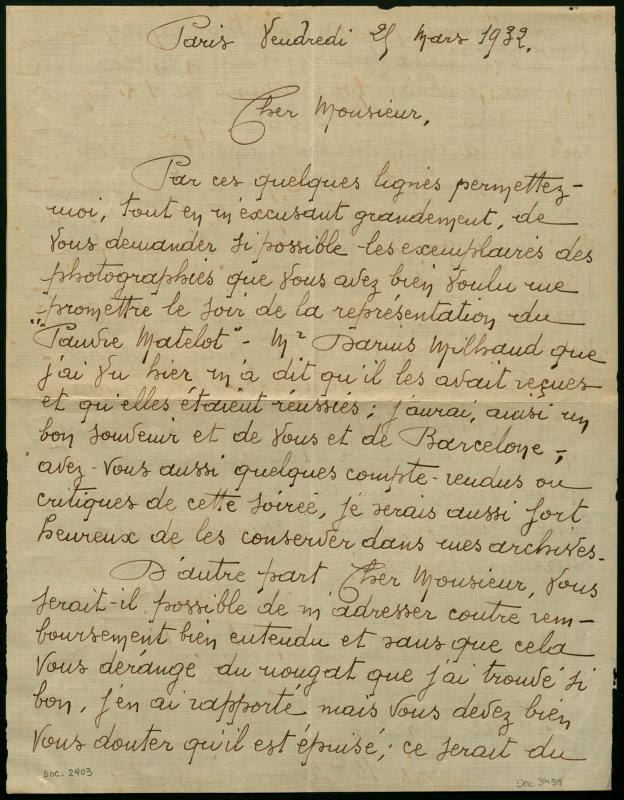 Paris Vendredi 25 Mars 1932.
Cher Monsieur,
Par ces quelques lignes permettez-
moi, tout en m'excusant grandement, de
vous demander si possible les exemplaires des
photographies que vous avez bien voulu me
promettre le soir de la représentation du
"Pauvre Matelot" - Mr Darius Milhaud que
j'ai vu hier m'a dit qu'il les avait reçues
et qu'elles étaient réussies; j'aurai, ainsi un
bon souvenir et de vous et de Barcelone;
avez-vous aussi quelques compte-rendus ou
critiques de cette soirée, je serais aussi fort
heureux de les conserver dans mes archives.
D'autre part Cher Monsieur, vous
serait-il possible de m'adresser contre rem-
boursement bien entendu et sans que cela
vous dérange du nougat que j'ai trouvé si
bon, j'en ai rapporté mais vous devez bien
vous douter qu'il est épuisé; ce serait du
DOC. 2903
DOC. 3939